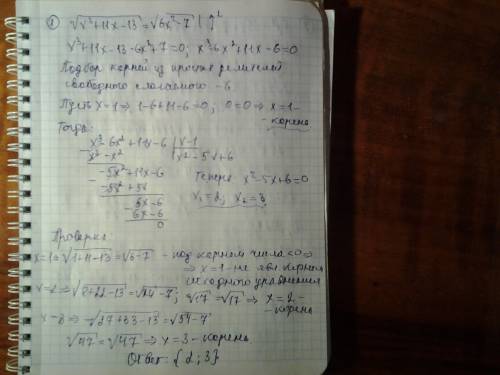 ① √x³+11x-13 = √6x²-7 | ↑²
x³+11x-13-6x²+7=0; x³-6x²+11x-6=0
Подбор корней из простых делителей
свободного слагаемого -6
Пусть x=1 ⇒ 1-6+11-6=0; 0=0 ⇒ x=1-
- корень
Тогда:
x³-6x²+11x-6 | x-1
x³-x² | x²-5x+6
-5x²+11x-6
-5x²+5x
6x-6
6x-6
0
Теперь x²-5x+6=0
x₁=2; x₂=3
Проверка:
x=1 ⇒ √1+11-13 = √6-7 - под корнем числа <0 ⇒
⇒ x=1 - не явл. корнем
исходного уравнения
x=2 ⇒ √8+22-13 = √24-7; √17 = √17 ⇒ x=2-
- корень
x=3 ⇒ √27+33-13 = √54-7
√47 = √47 ⇒ x=3 - корень
Ответ: {2; 3}